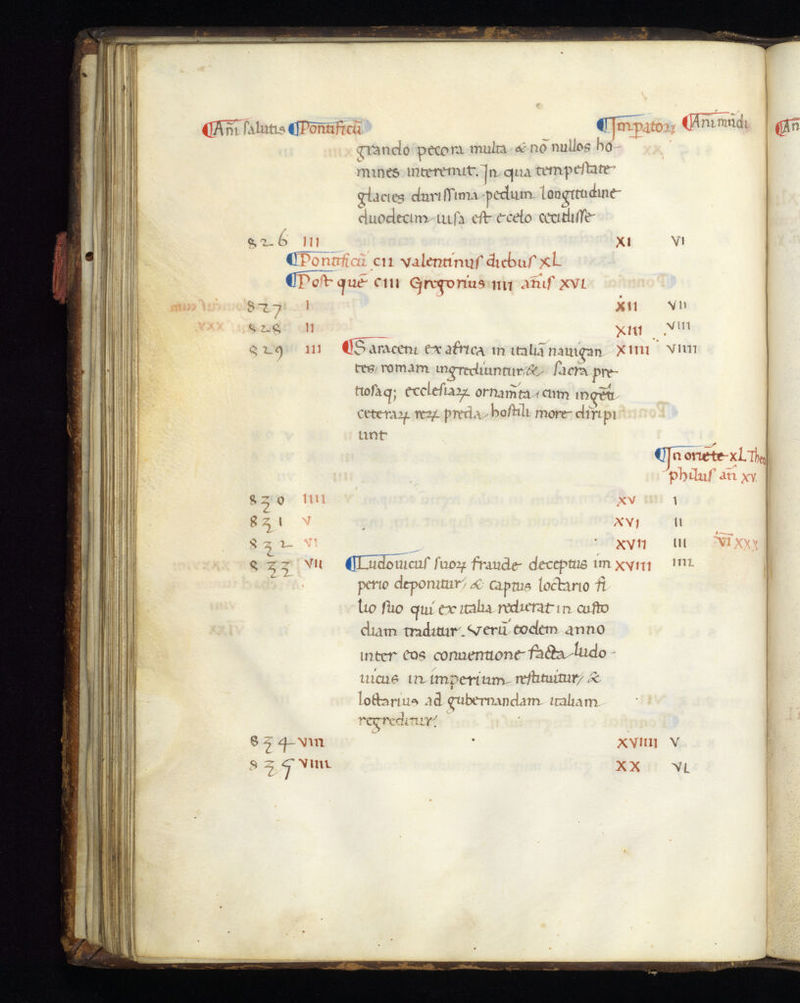 Añi salutis Pontificũ Impatoꝝ Añi mũdi
grando pecora multa & nõ nullos ho-
mines interemit. In qua tempestate
glacies durissima pedum longitudine
duodecim uisa est e celo cecidisse
826 III XI VI
Pontificũ CII Valentinus diebus XL
Post quẽ CIII Gregorius IIII añis XVI
827 I XII VII
828 II XIII VIII
829 III Saraceni ex africa in italiã nauigan XIIII VIIII
tes, romam ingrediuntur, & sacra pre-
tiosaq; ecclesiaꝝ ornamẽta, cum ingẽti
ceteraꝝ reꝝ preda, hostili more diripi
unt
In oriẽte XL Theo
philus añ XV.
830 IIII XV I
831 V XVI II
832 VI XVII III VI XXX
833 VII Ludouicus suoꝝ fraude deceptus im XVIII IIII
perio deponitur, & captus loctario fi
lio suo qui ex italia redierat in custo
diam traditur. Verũ eodem anno
inter eos conuentione facta, ludo-
uicus in imperium restituitur, &
loctarius ad gubernandam italiam
regreditur.
834 VIII XVIIII V
835 VIIII XX VI